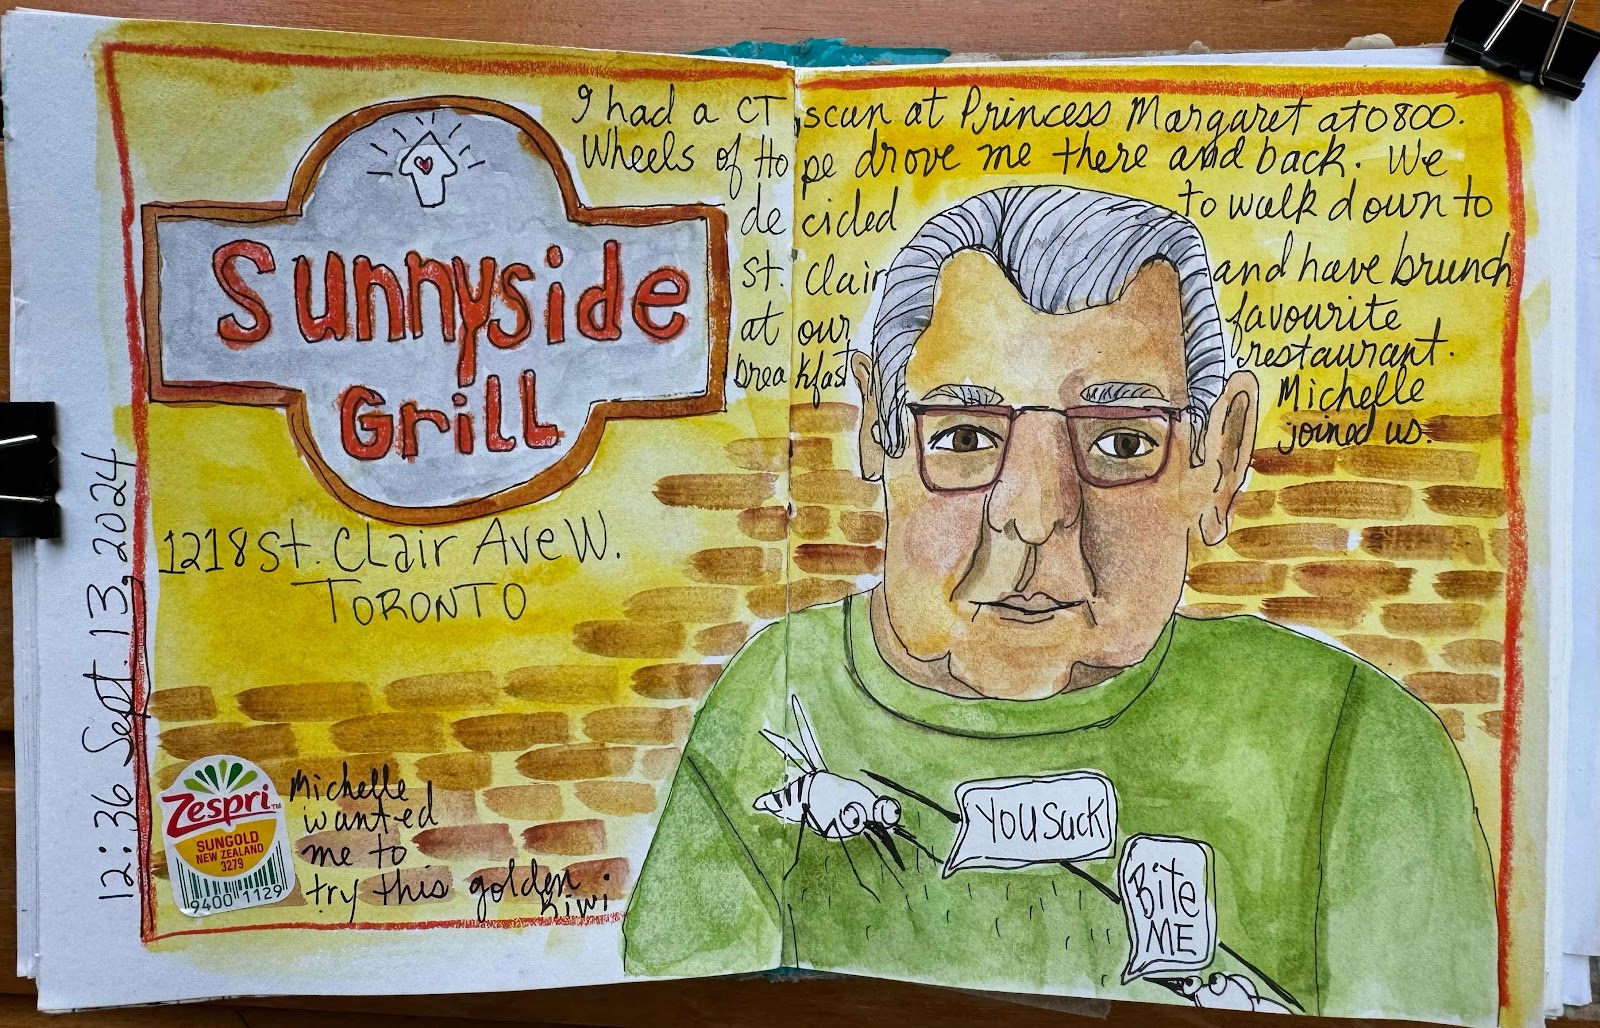 I had a CT scan at Princess Margaret at 0800.
Wheels of Hope drove me there and back. We
decided to walk down to
St. Clair and have brunch
at our favourite
breakfast restaurant.
Michelle
joined us.
Sunnyside
Grill
1218 St. Clair Ave W.
TORONTO
12:36 Sept. 13, 2024
Zespri™
SUNGOLD
NEW ZEALAND
3279
9400 1129
Michelle
wanted
me to
try this golden
kiwi
You Suck
Bite
ME